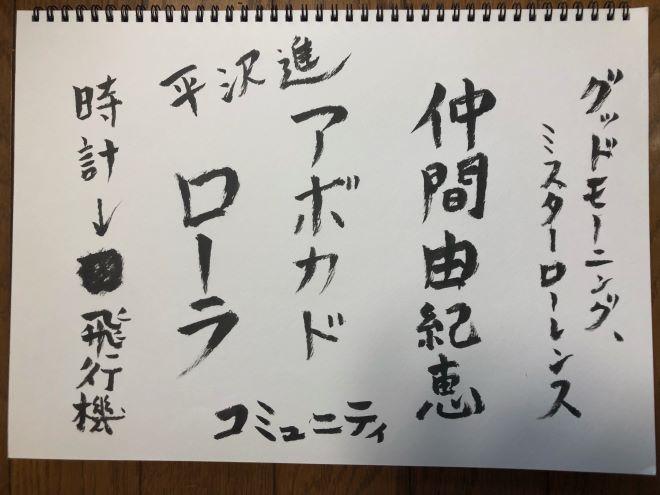 グッドモーニング、
ミスターローレンス
仲間由紀恵
アボカド
平沢進
ローラ
コミュニティ
時計↓飛行機